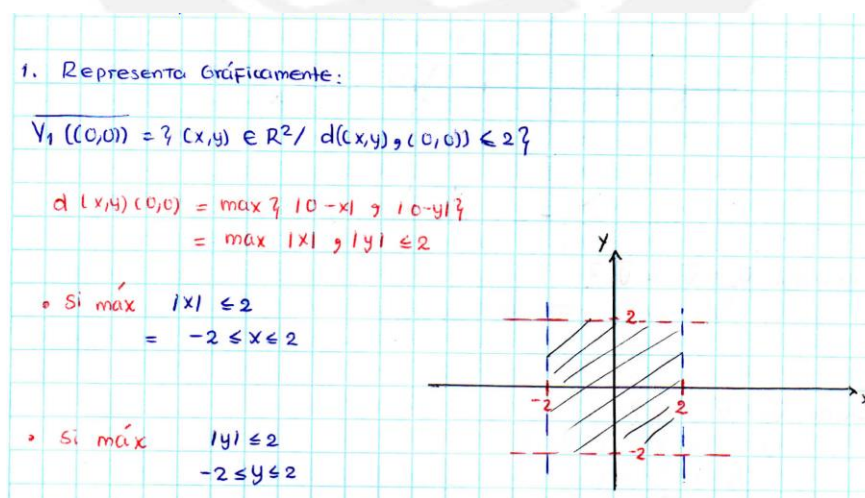 1. Representa Gráficamente:
V₁ ((0,0)) = { (x,y) ∈ R² / d((x,y), (0,0)) ≤ 2}
d (x,y) (0,0) = max { |0-x| , |0-y|}
= max |x| , |y| ≤ 2
• Si máx |x| ≤ 2
= -2 ≤ x ≤ 2
• Si máx |y| ≤ 2
-2 ≤ y ≤ 2
Y
2
-2 2 x
-2